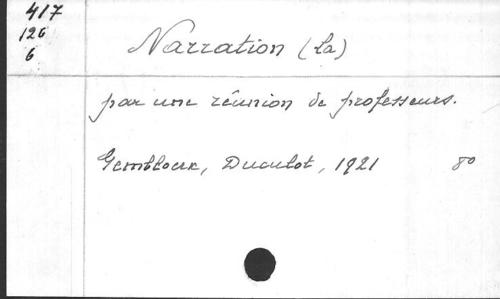 417
126
6
Narration (La)
par une réunion de professeurs.
Gembloux, Duculot, 1921 8°